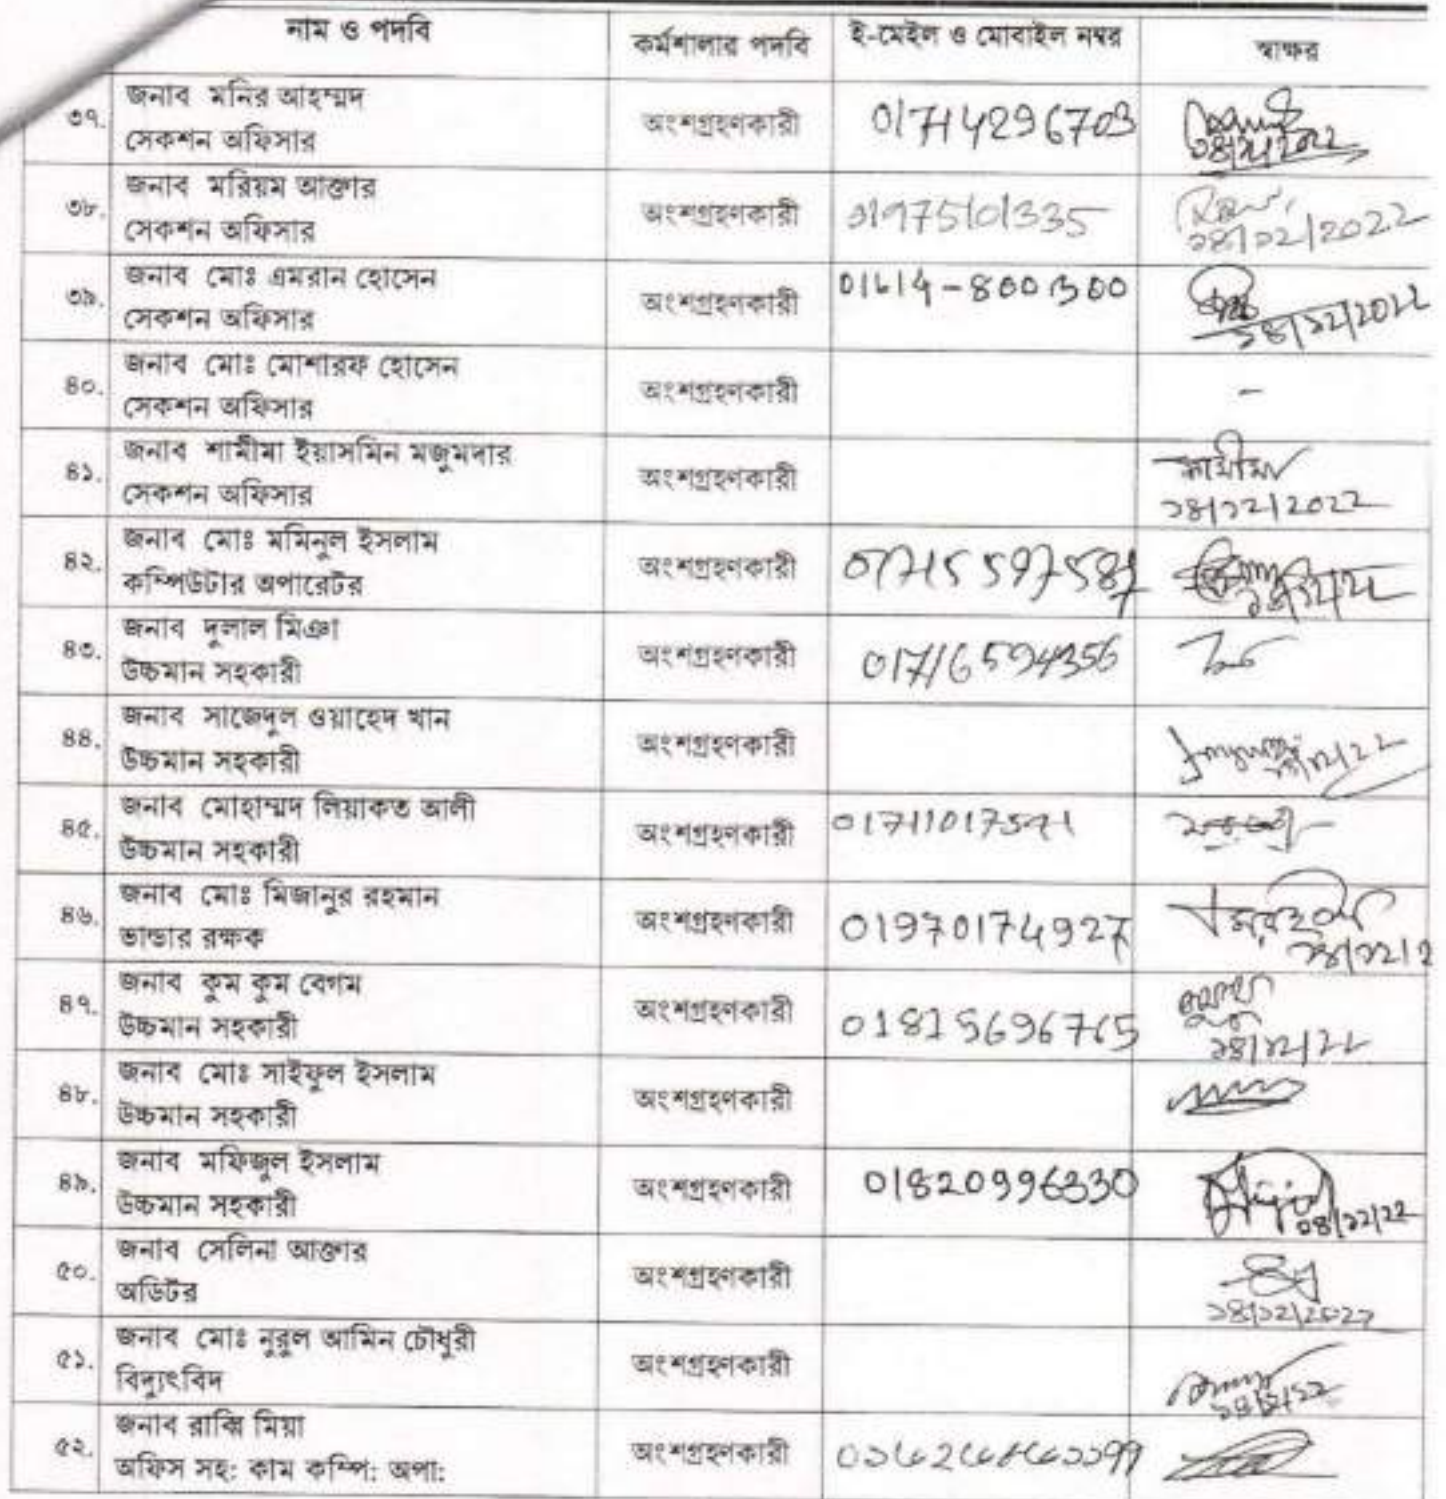 নাম ও পদবি কর্মশালার পদবি ই-মেইল ও মোবাইল নম্বর স্বাক্ষর
৩৭. জনাব মনির আহম্মদ
সেকশন অফিসার অংশগ্রহণকারী 01714296703
৩৮. জনাব মরিয়ম আক্তার
সেকশন অফিসার অংশগ্রহণকারী 01975101335
১৪/১২/2022
৩৯. জনাব মোঃ এমরান হোসেন
সেকশন অফিসার অংশগ্রহণকারী 01614-800300
১৪/১২/2022
৪০. জনাব মোঃ মোশারফ হোসেন
সেকশন অফিসার অংশগ্রহণকারী -
৪১. জনাব শামীমা ইয়াসমিন মজুমদার
সেকশন অফিসার অংশগ্রহণকারী শামীমা
১৪/১২/2022
৪২. জনাব মোঃ মমিনুল ইসলাম
কম্পিউটার অপারেটর অংশগ্রহণকারী 01715597587
৪৩. জনাব দুলাল মিঞা
উচ্চমান সহকারী অংশগ্রহণকারী 01716594356
৪৪. জনাব সাজেদুল ওয়াহেদ খান
উচ্চমান সহকারী অংশগ্রহণকারী
৪৫. জনাব মোহাম্মদ লিয়াকত আলী
উচ্চমান সহকারী অংশগ্রহণকারী
৪৬. জনাব মোঃ মিজানুর রহমান
ভান্ডার রক্ষক অংশগ্রহণকারী 01970174927
৪৭. জনাব কুম কুম বেগম
উচ্চমান সহকারী অংশগ্রহণকারী
১৪/১২/22
৪৮. জনাব মোঃ সাইফুল ইসলাম
উচ্চমান সহকারী অংশগ্রহণকারী
৪৯. জনাব মফিজুল ইসলাম
উচ্চমান সহকারী অংশগ্রহণকারী 01820996330
১৪/১২/22
৫০. জনাব সেলিনা আক্তার
অডিটর অংশগ্রহণকারী
১৪/১২/2022
৫১. জনাব মোঃ নুরুল আমিন চৌধুরী
বিদ্যুৎবিদ অংশগ্রহণকারী
৫২. জনাব রাব্বি মিয়া
অফিস সহ: কাম কম্পি: অপা: অংশগ্রহণকারী